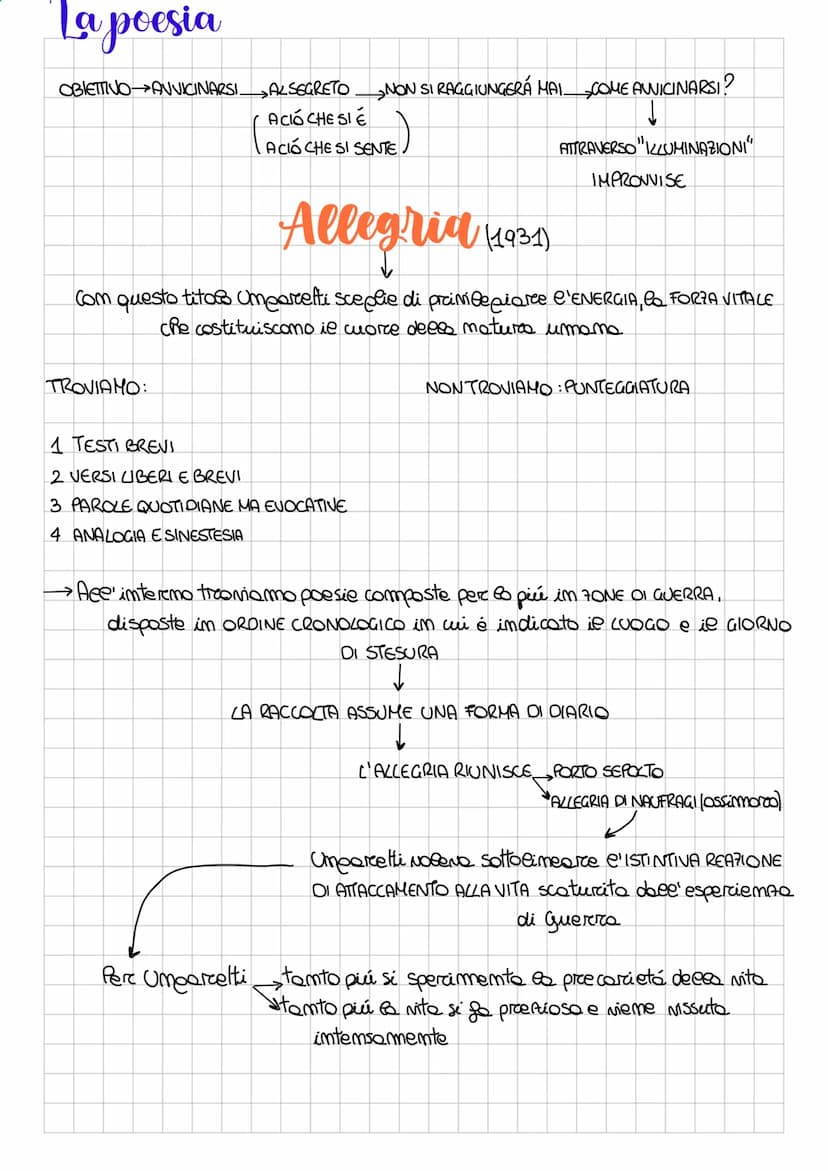 La poesia
OBIETTIVO → AVVICINARSI → AL SEGRETO → NON SI RAGGIUNGERÁ MAI → COME AVVICINARSI?
(A CIÓ CHE SI É
A CIÓ CHE SI SENTE)
ATTRAVERSO "ILLUMINAZIONI"
IMPROVVISE
Allegria (1931)
Con questo titolo Ungaretti sceglie di privilegiare l'ENERGIA, la FORZA VITALE
che costituiscono il cuore della natura umana
TROVIAMO:
NON TROVIAMO: PUNTEGGIATURA
1 TESTI BREVI
2 VERSI LIBERI E BREVI
3 PAROLE QUOTIDIANE MA EVOCATIVE
4 ANALOGIA E SINESTESIA
→ All'interno troviamo poesie composte per lo piú in ZONE DI GUERRA,
disposte in ORDINE CRONOLOGICO in cui é indicato il LUOGO e il GIORNO
DI STESURA
LA RACCOLTA ASSUME UNA FORMA DI DIARIO
L'ALLEGRIA RIUNISCE → PORTO SEPOLTO
ALLEGRIA DI NAUFRAGI (ossimoro)
Ungaretti voleva sottolineare l'ISTINTIVA REAZIONE
DI ATTACCAMENTO ALLA VITA scaturita dall'esperienza
di Guerra
Per Ungaretti → tanto piú si sperimenta la precarietá della vita
tanto piú la vita si fa preziosa e viene vissuta
intensamente